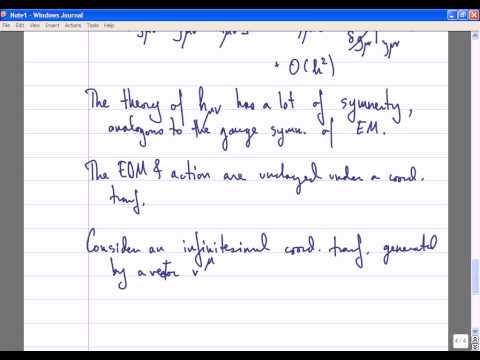 Note1 - Windows Journal
File Edit View Insert Actions Tools Help
+ O(h²)
The theory of hμν has a lot of symmetry,
analogous to the gauge symm. of EM.
The EOM & action are unchanged under a coord.
transf.
Consider an infinitesimal coord. transf. generated
by a vector v^μ
4 / 4